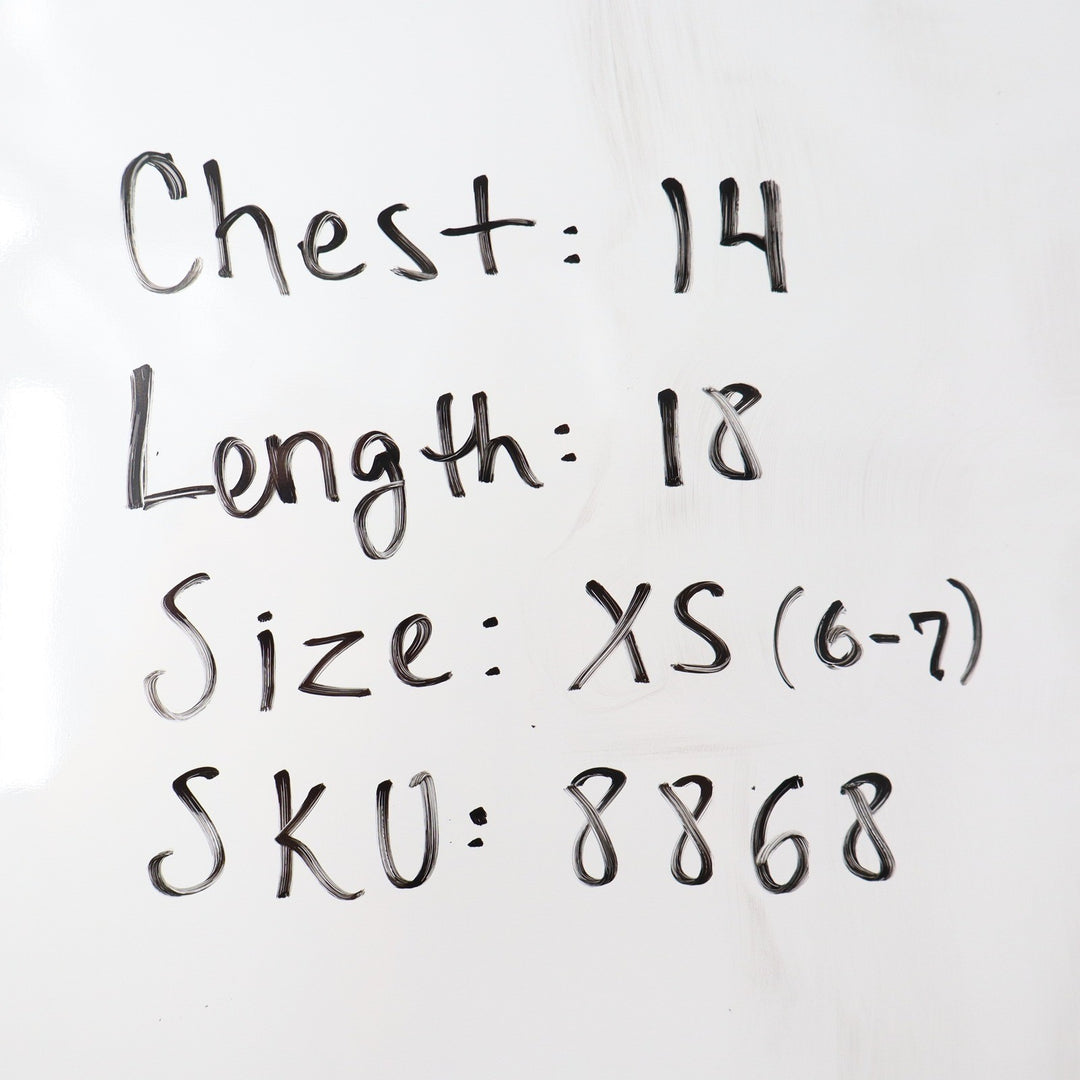 Chest: 14
Length: 18
Size: XS (6-7)
SKU: 8868